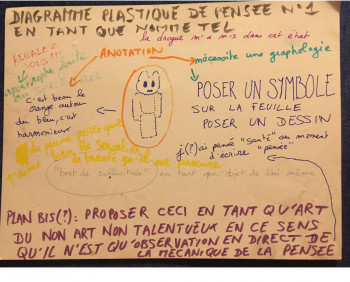 DIAGRAMME PLASTIQUE DE PENSÉE N°1
EN TANT QUE NOMMÉ TEL
la drogue m'a mis dans cet état
ANOTATION
nécessite une graphologie
POSER UN SYMBOLE
SUR LA FEUILLE
POSER UN DESSIN
c'est beau le
orange autour
du bleu, c'est
harmonieux
j(?)ai pensé "santé" au moment
d'écrire "pensée"
du jaune parce que
de beauté qu'il me procure
en tant que objet de lui même
PLAN BIS(?): PROPOSER CECI EN TANT QU'ART
DU NON ART NON TALENTUEUX EN CE SENS
QU'IL N'EST QU'OBSERVATION EN DIRECT DE
LA MÉCANIQUE DE LA PENSÉE